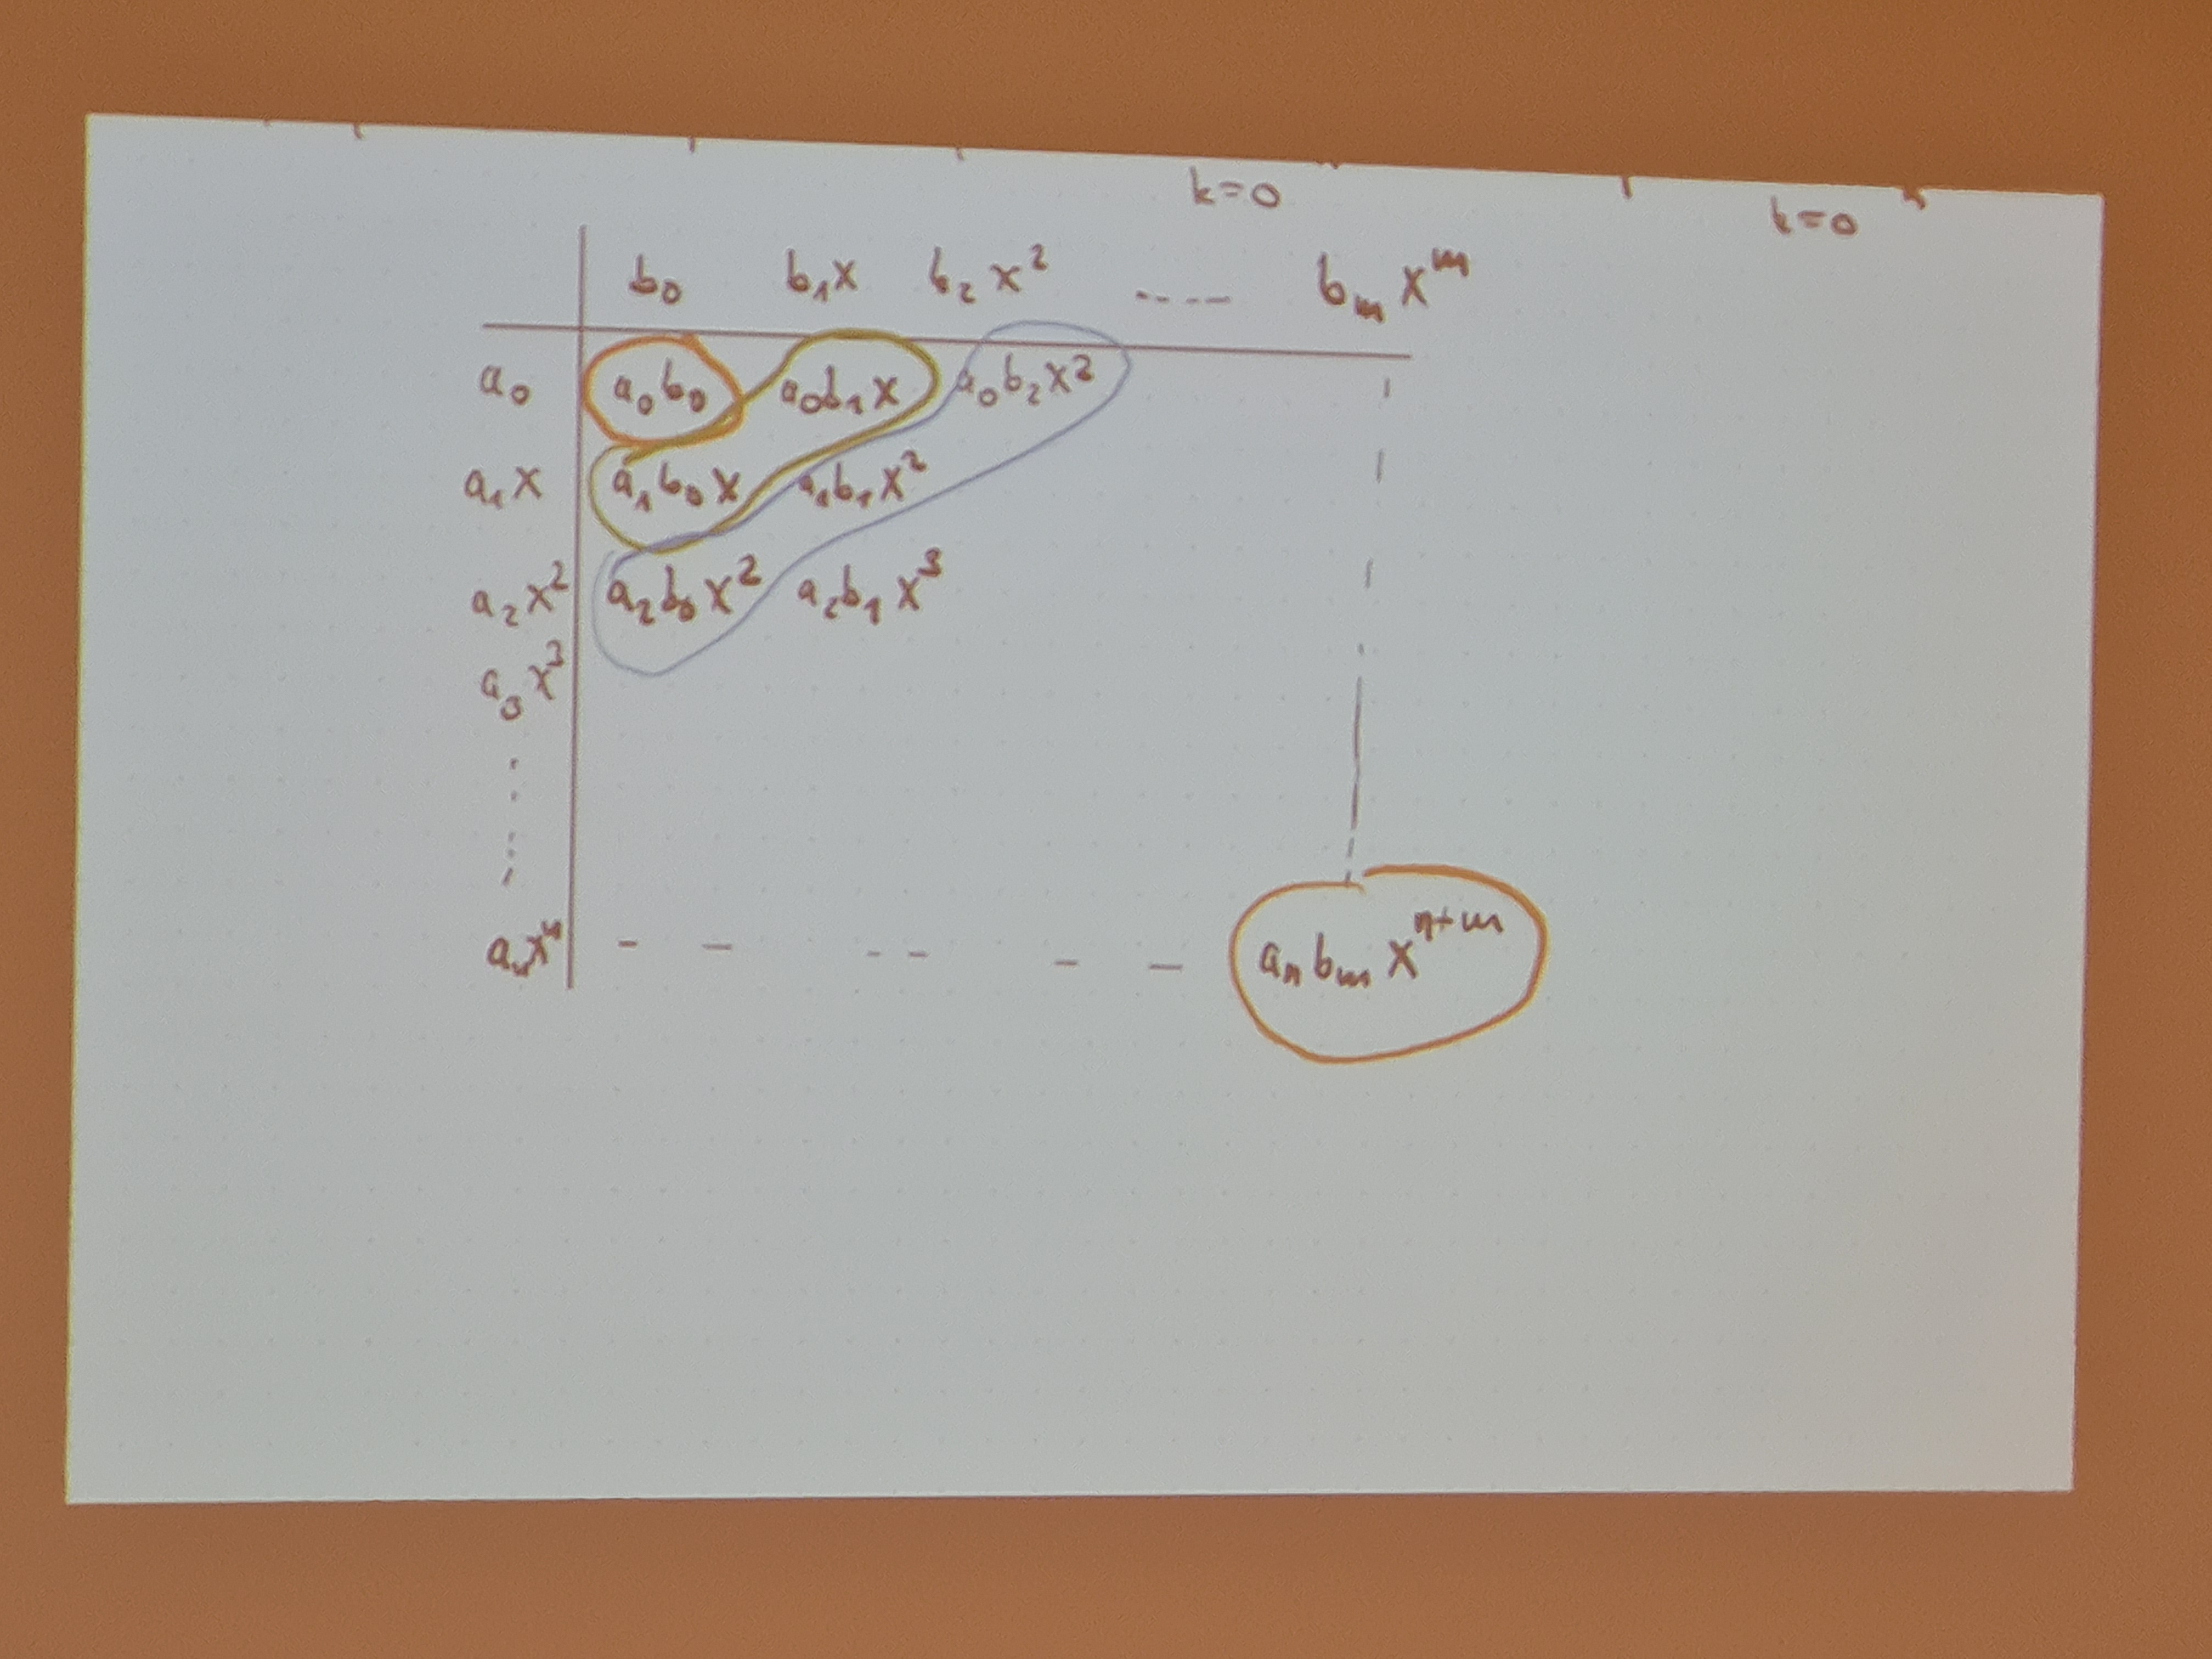 k=0 k=0
b₀ b₁x b₂x² ----- bₘxᵐ
a₀ a₀b₀ a₀b₁x a₀b₂x²
a₁x a₁b₀x a₁b₁x²
a₂x² a₂b₀x² a₂b₁x³
a₃x³
aₙxⁿ - - - - - - aₙbₘxⁿ⁺ᵐ